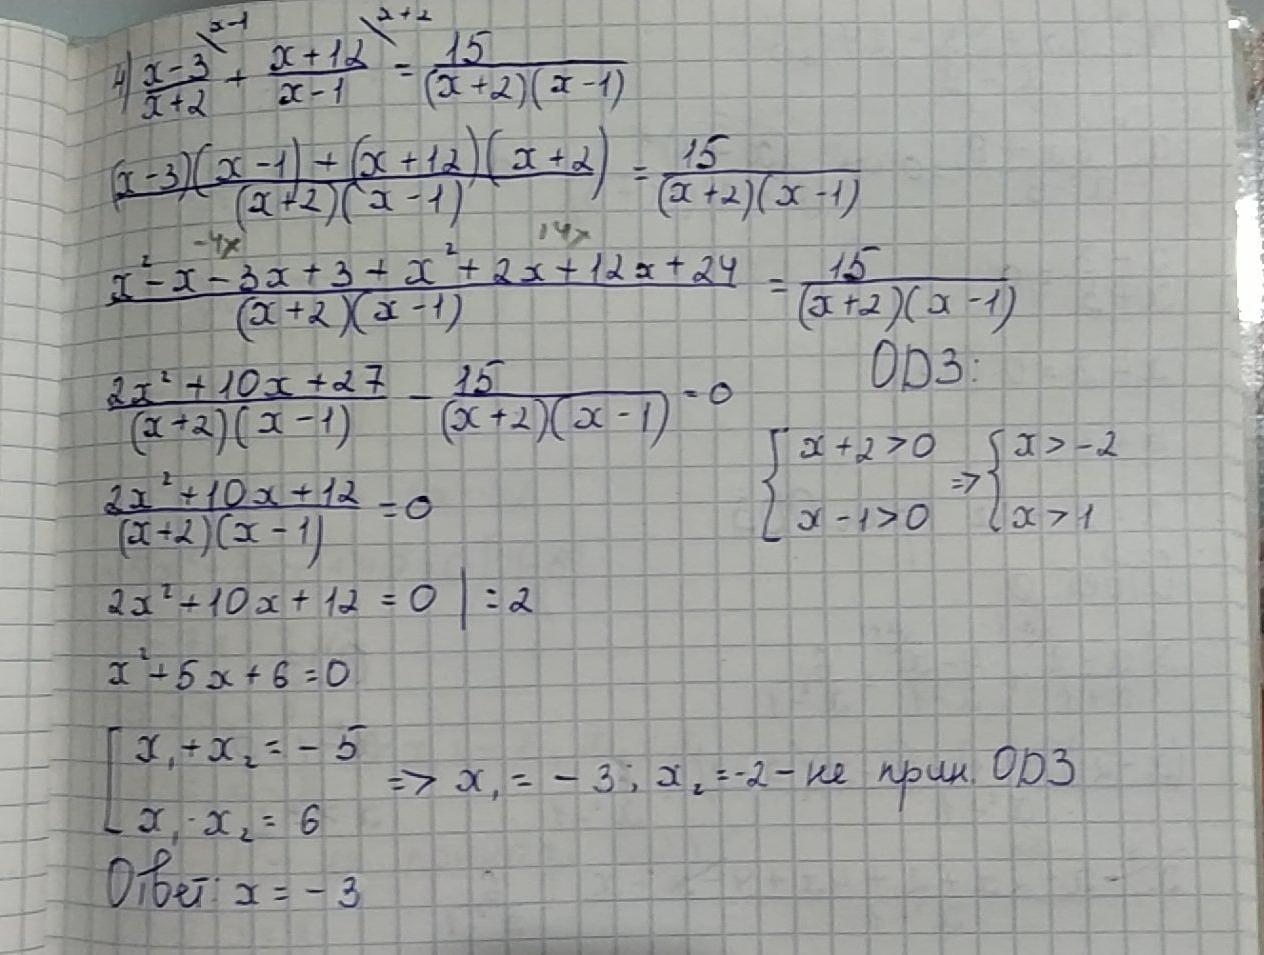 4) (x-3)/(x+2) \x-1 + (x+12)/(x-1) \x+2 = 15/((x+2)(x-1))
((x-3)(x-1)+(x+12)(x+2))/((x+2)(x-1)) = 15/((x+2)(x-1))
-4x 14x
(x²-x-3x+3+x²+2x+12x+24)/((x+2)(x-1)) = 15/((x+2)(x-1))
ОДЗ:
(2x²+10x+27)/((x+2)(x-1)) - 15/((x+2)(x-1)) = 0
{ x+2>0 => { x>-2
x-1>0 x>1
(2x²+10x+12)/((x+2)(x-1)) = 0
2x²+10x+12=0 | :2
x²+5x+6=0
[ x₁+x₂=-5
x₁·x₂=6 => x₁=-3; x₂=-2 - не прин. ОДЗ
Ответ: x=-3